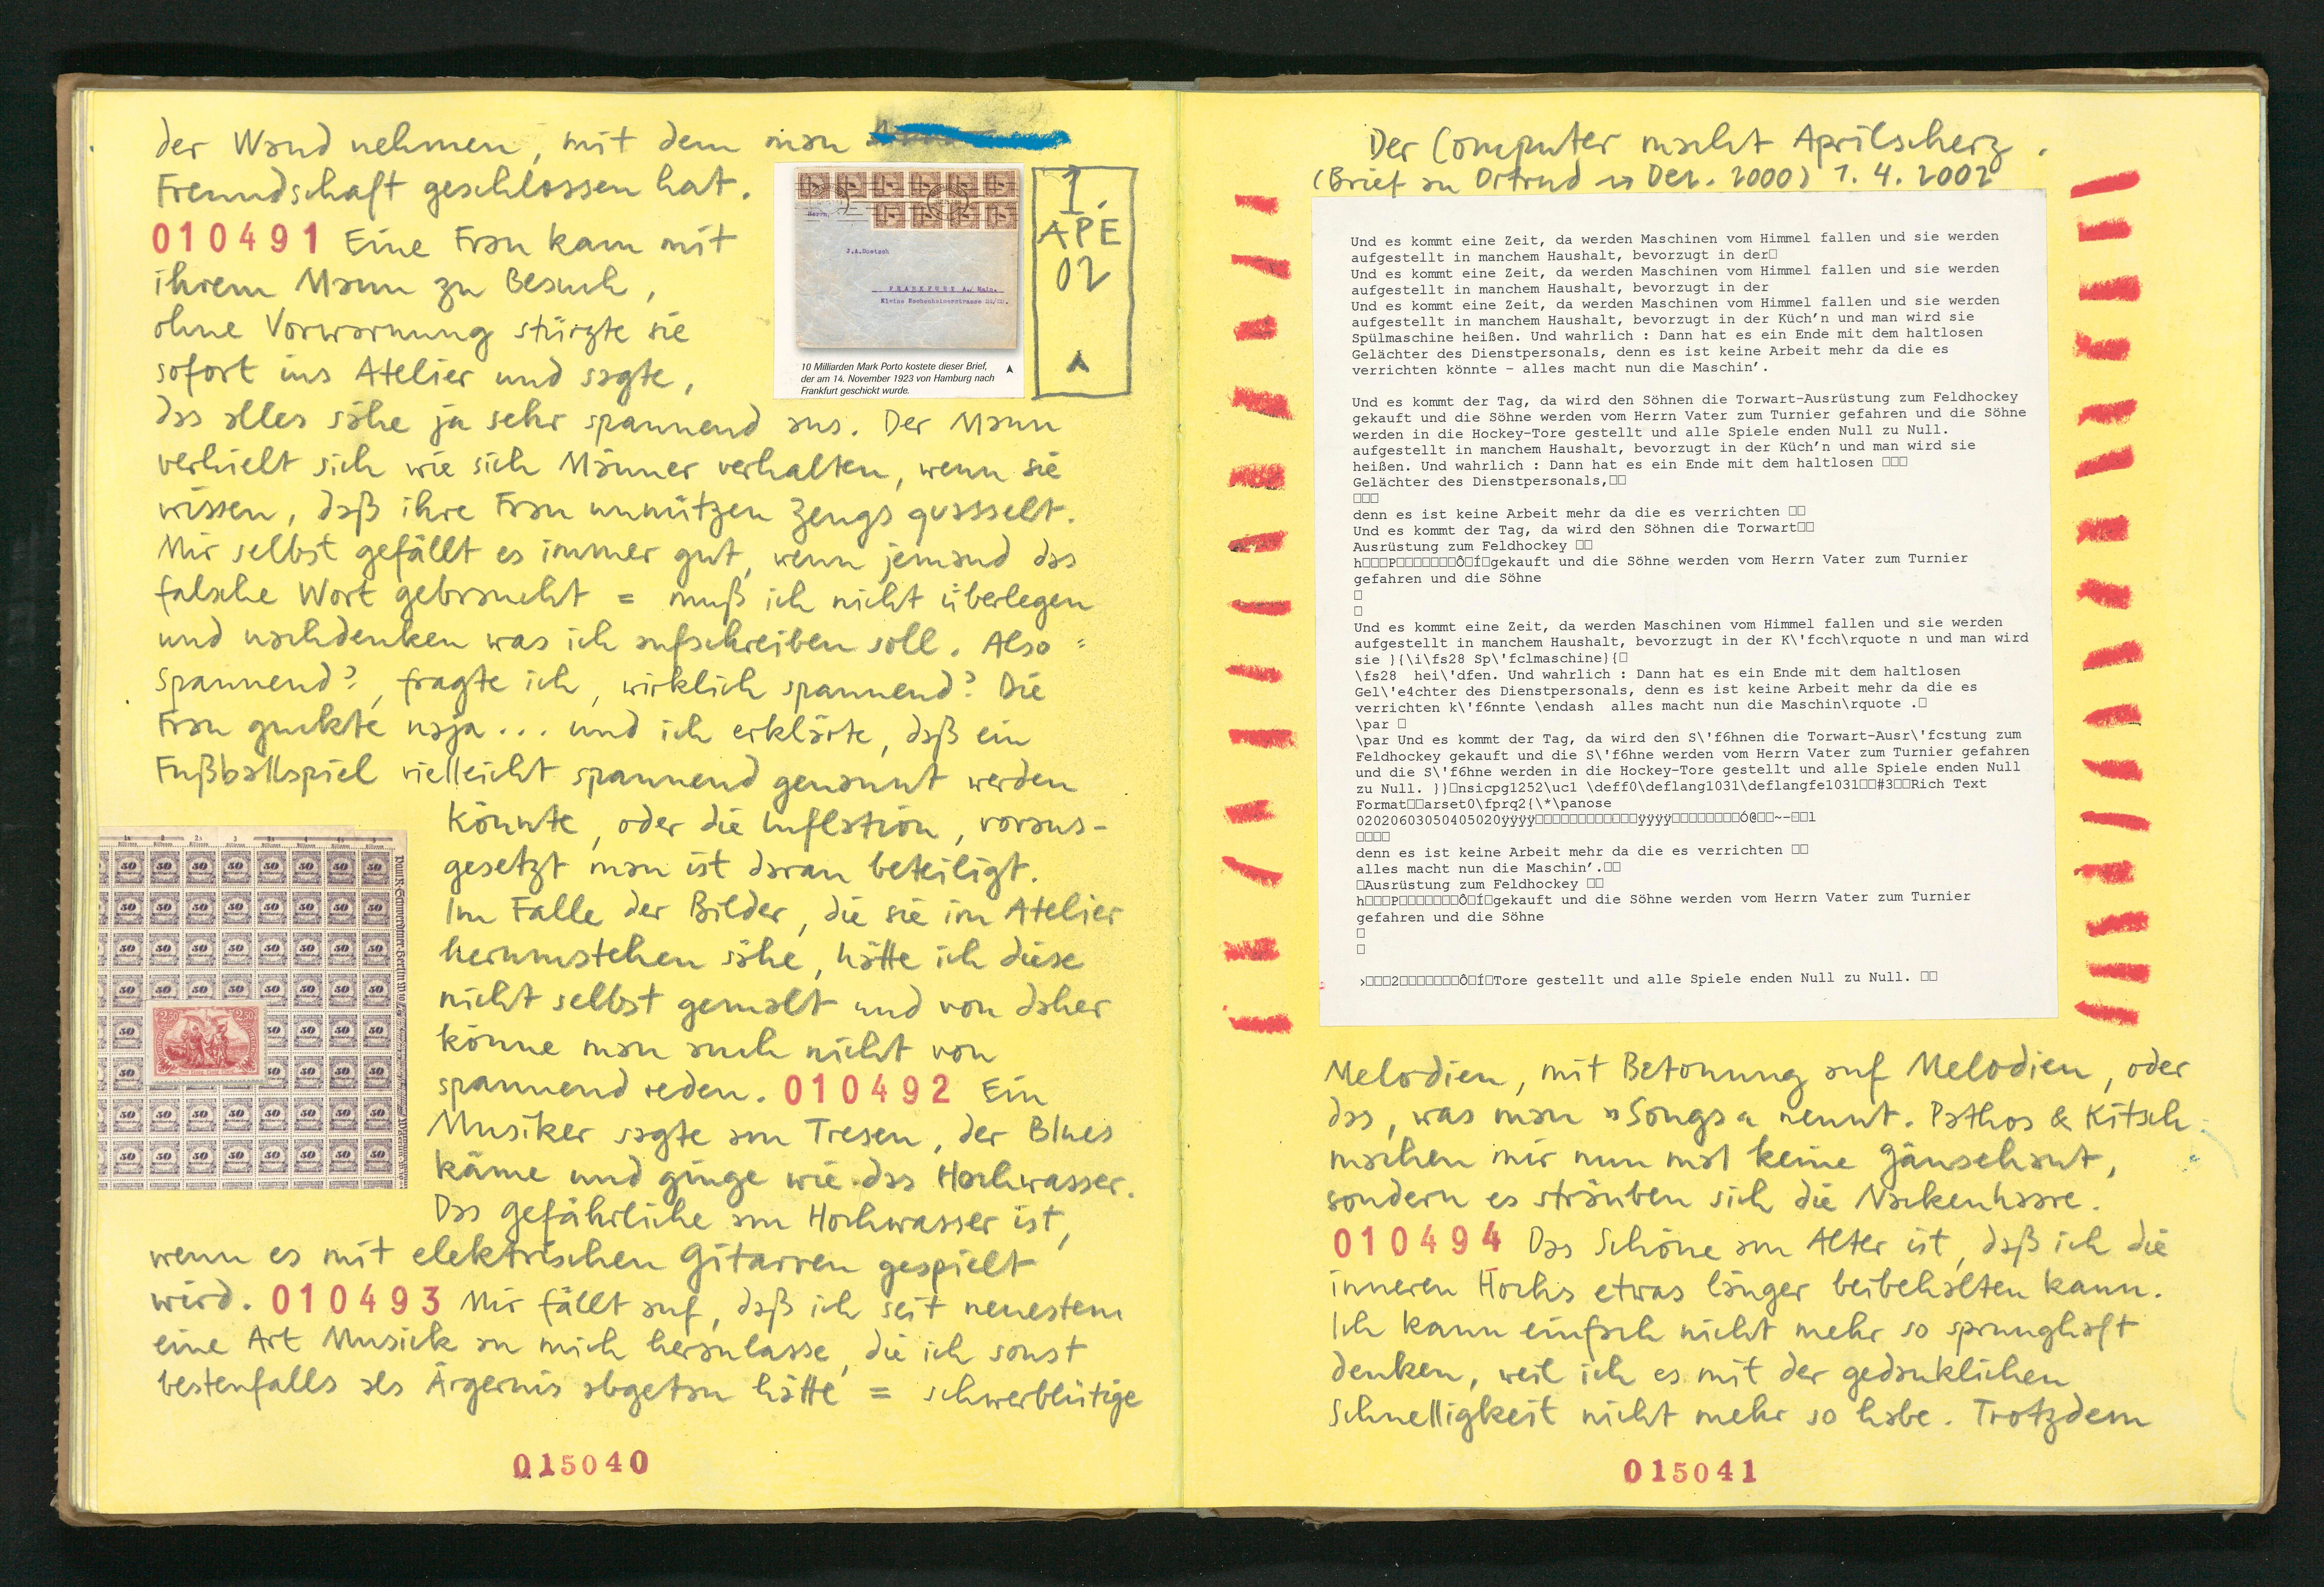 der Wand nehmen, mit dem man
Freundschaft geschlossen hat.
010491 Eine Frau kam mit
ihrem Mann zu Besuch,
ohne Vorwarnung stürzte sie
sofort ins Atelier und sagte,
das alles sähe ja sehr spannend aus. Der Mann
verhielt sich wie sich Männer verhalten, wenn sie
wissen, daß ihre Frau unnützen Zeugs qussselt.
Mir selbst gefällt es immer gut, wenn jemand das
falsche Wort gebraucht = muß ich nicht überlegen
und nachdenken was ich aufschreiben soll. Also =
Spannend?, fragte ich, wirklich spannend? Die
Frau guckte naja... und ich erklärte, daß ein
Fußballspiel vielleicht spannend genannt werden
könnte, oder die Inflation, voraus-
gesetzt man ist daran beteiligt.
Im Falle der Bilder, die sie im Atelier
herumstehen sähe, hätte ich diese
nicht selbst gemalt und von daher
könne man auch nicht von
spannend reden. 010492 Ein
Musiker sagte am Tresen, der Blues
käme und ginge wie das Hochwasser.
Das gefährliche am Hochwasser ist,
wenn es mit elektrischen Gitarren gespielt
wird. 010493 Mir fällt auf, daß ich seit neuestem
eine Art Musick an mich heranlasse, die ich sonst
bestenfalls als Ärgernis abgetan hätte = schwerblütige
015040
Herrn,
J.A.Doetsch
FRANKFURT A./ Main.
Kleine Eschenheimerstrasse
10 Milliarden Mark Porto kostete dieser Brief,
der am 14. November 1923 von Hamburg nach
Frankfurt geschickt wurde.
1.
APE
02
50
2,50 2,50
Der Computer macht Aprilscherz.
(Brief an Ortrud Dez. 2000) 1. 4. 2002
Und es kommt eine Zeit, da werden Maschinen vom Himmel fallen und sie werden
aufgestellt in manchem Haushalt, bevorzugt in der□
Und es kommt eine Zeit, da werden Maschinen vom Himmel fallen und sie werden
aufgestellt in manchem Haushalt, bevorzugt in der
Und es kommt eine Zeit, da werden Maschinen vom Himmel fallen und sie werden
aufgestellt in manchem Haushalt, bevorzugt in der Küch’n und man wird sie
Spülmaschine heißen. Und wahrlich : Dann hat es ein Ende mit dem haltlosen
Gelächter des Dienstpersonals, denn es ist keine Arbeit mehr da die es
verrichten könnte – alles macht nun die Maschin’.
Und es kommt der Tag, da wird den Söhnen die Torwart-Ausrüstung zum Feldhockey
gekauft und die Söhne werden vom Herrn Vater zum Turnier gefahren und die Söhne
werden in die Hockey-Tore gestellt und alle Spiele enden Null zu Null.
aufgestellt in manchem Haushalt, bevorzugt in der Küch’n und man wird sie
heißen. Und wahrlich : Dann hat es ein Ende mit dem haltlosen □□□
Gelächter des Dienstpersonals,□□
□□□
denn es ist keine Arbeit mehr da die es verrichten □□
Und es kommt der Tag, da wird den Söhnen die Torwart□□
Ausrüstung zum Feldhockey □□
h□□□P□□□□□□□Ô□Í□gekauft und die Söhne werden vom Herrn Vater zum Turnier
gefahren und die Söhne
□
□
Und es kommt eine Zeit, da werden Maschinen vom Himmel fallen und sie werden
aufgestellt in manchem Haushalt, bevorzugt in der K\'fcch\rquote n und man wird
sie }{\i\fs28 Sp\'fclmaschine}{□
\fs28  hei\'dfen. Und wahrlich : Dann hat es ein Ende mit dem haltlosen
Gel\'e4chter des Dienstpersonals, denn es ist keine Arbeit mehr da die es
verrichten k\'f6nnte \endash  alles macht nun die Maschin\rquote .□
\par □
\par Und es kommt der Tag, da wird den S\'f6hnen die Torwart-Ausr\'fcstung zum
Feldhockey gekauft und die S\'f6hne werden vom Herrn Vater zum Turnier gefahren
und die S\'f6hne werden in die Hockey-Tore gestellt und alle Spiele enden Null
zu Null. }}□nsicpg1252\uc1 \deff0\deflang1031\deflangfe1031□□#3□□Rich Text
Format□□arset0\fprq2{\*\panose
02020603050405020ÿÿÿÿ□□□□□□□□□□□□□ÿÿÿÿ□□□□□□□□□Ó@□□~–□□l
□□□□
denn es ist keine Arbeit mehr da die es verrichten □□
alles macht nun die Maschin’.□□
□Ausrüstung zum Feldhockey □□
h□□□P□□□□□□□Ô□Í□gekauft und die Söhne werden vom Herrn Vater zum Turnier
gefahren und die Söhne
□
□
›□□□2□□□□□□□Ô□Í□Tore gestellt und alle Spiele enden Null zu Null. □□
Melodien, mit Betonung auf Melodien, oder
das, was man »Songs« nennt. Pathos & Kitsch
machen mir nun mal keine Gänsehaut,
sondern es sträuben sich die Nackenhaare.
010494 Das Schöne am Alter ist, daß ich die
inneren Hochs etwas länger beibehalten kann.
Ich kann einfach nicht mehr so sprunghaft
denken, weil ich es mit der gedanklichen
Schnelligkeit nicht mehr so habe. Trotzdem
015041